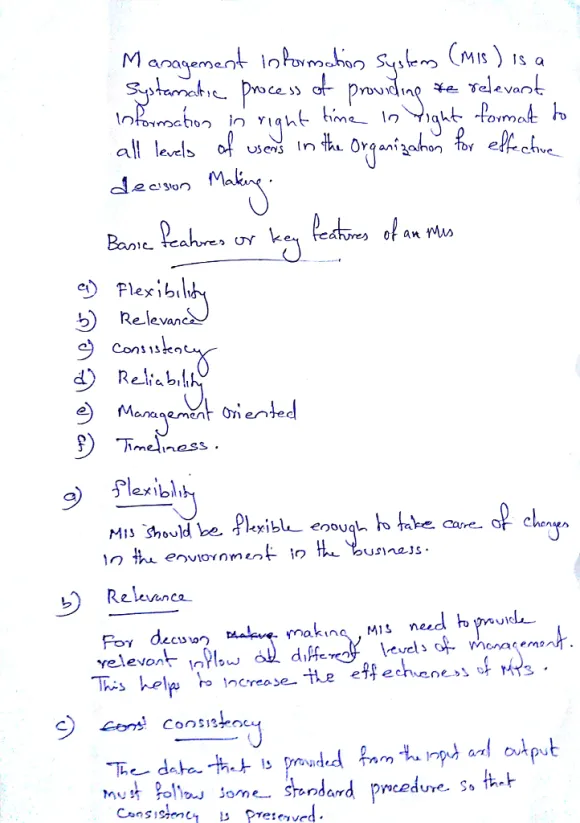 Management Information System (MIS) is a
Systamatic process of providing re relevant
Information in right time in right format to
all levels of users in the Organization for effective
decision Making.
Basic features or key features of an MIS
a) Flexibility
b) Relevance
c) Consistency
d) Reliability
e) Management oriented
f) Timeliness.
a) flexibility
MIS should be flexible enough to take care of changes
in the enviornment in the business.
b) Relevance
For decision making making, MIS need to provide
relevant inflow at different levels of management.
This helps to increase the effectiveness of MIS.
c) Cons' consistency
The data that is provided from the input and output
must follow some standard procedure so that
Consistency is preserved.